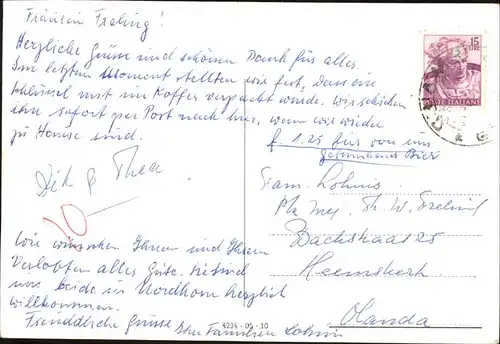 Fräulein Freling!
Herzliche Grüsse und schönen Dank für alles.
Im letzten Moment stellten wir fest, dass ein
Schlüssel mit im Koffer verpackt wurde. Wir schicken
ihn sofort per Post nach hier, wenn wir wieder
zu Hause sind.
Dik & Thea
10
Wir wünschen Ihnen und Ihrem
Verlobten alles Gute. Sie sind
uns beide in Nordhorn herzlich
willkommen.
Freundliche Grüsse
Familien
15
LIRE
POSTE ITALIANE
f 1.25 für von uns
Bier
Fam.
p/a Mej. W. Freling
Bachstraat 25
Heemskerk
Olanda
4214 - 05 - 10